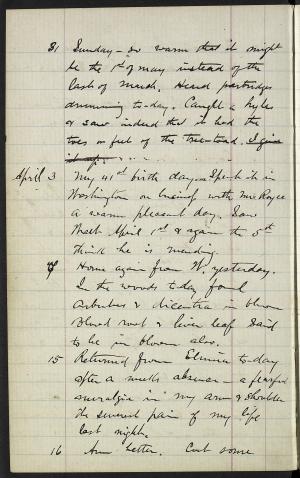 31 Sunday - so warm that it might
be the 1st of May instead of the
last of March. Heard partridge
drumming to-day. Caught a hyla
& saw indeed that it had the
toes or feet of the tree-toad. I give
it up.
April 3 My 41st birth day. Spent it in
Washington on business with McRoyce
a warm pleasant day. Saw
Walt April 1st & again the 5th
think he is mending.
Home again from W. yesterday.
In the woods to-day found
arbutus & dicentra in bloom
Blood root & liver leaf said
to be in bloom also.
15 Returned from Elmira to-day
after a weeks absence - a fearful
neuralgia in my arm & shoulder
the severest pain of my life
last night.
16 Am better. Cut some